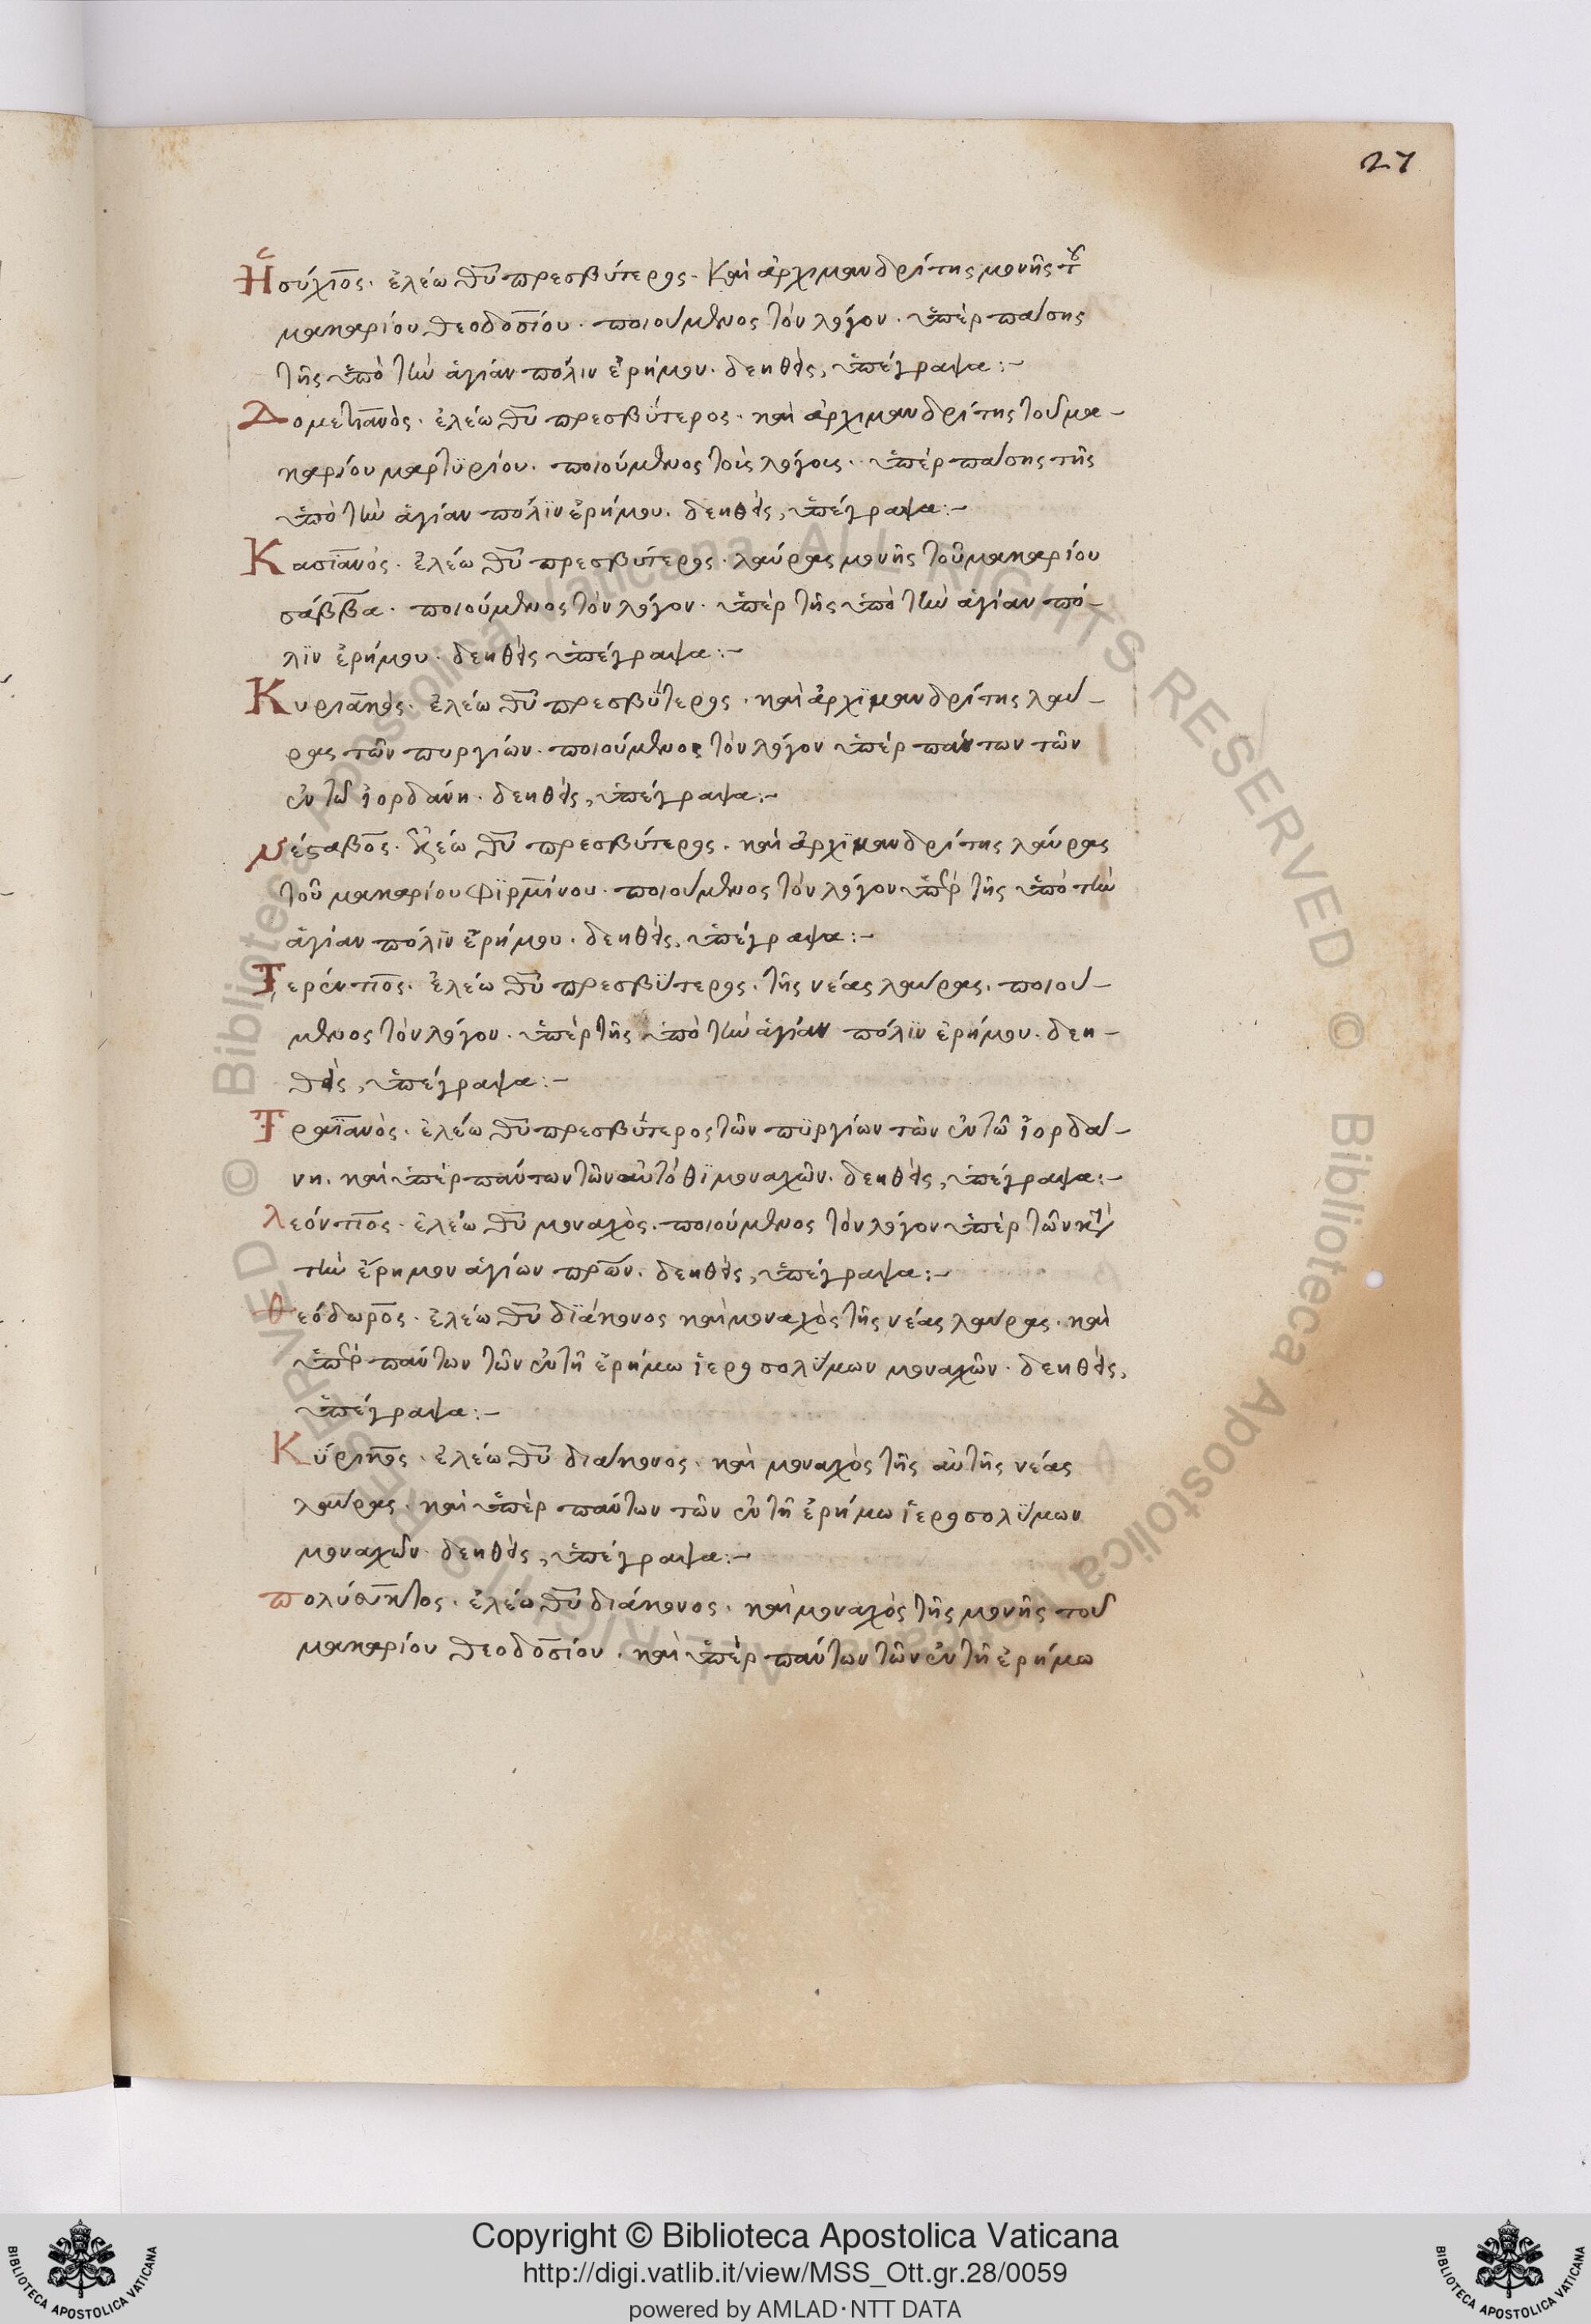 27
Ἡσύχιος· ἐλέω θῦ πρεσβύτερος· καὶ ἀρχιμανδρίτης μονῆς τοῦ
μακαρίου θεοδοσίου· ποιούμενος τὸν λόγον· ὑπὲρ πάσης
τῆς ὑπὸ τὴν ἁγίαν πόλιν ἐρήμου· δεηθεὶς, ὑπέγραψα:–
Δομετιανὸς· ἐλέω θῦ πρεσβύτερος· καὶ ἀρχιμανδρίτης τοῦ μα–
καρίου μαρτϋρίου· ποιούμενος τοὺς λόγους· ὑπὲρ πάσης τῆς
ὑπὸ τὴν ἁγίαν πόλϊν ἐρήμου· δεηθεὶς, ὑπέγραψα:–
Κασϊανὸς· ἐλέω θῦ πρεσβύτερος· λαύρας μονῆς τοῦ μακαρίου
σάββα· ποιούμενος τὸν λόγον· ὑπὲρ τῆς ὑπὸ τὴν ἁγίαν πό–
λϊν ἐρήμου· δεηθεὶς ὑπέγραψα:–
Κυριακὸς· ἐλέω θῦ πρεσβύτερος· καὶ ἀρχϊμανδρίτης λαύ–
ρας τῶν πυργίων· ποιούμενος τὸν λόγον ὑπὲρ πάντων τῶν
ἐν τῶ ἰορδάνη· δεηθεὶς, ὑπέγραψα:–
Νέσταβος· ἐλέω θῦ πρεσβύτερος· καὶ ἀρχϊμανδρίτης λαύρας
τοῦ μακαρίου φϊρμίνου· ποιούμενος τὸν λόγον ὑπὲρ τῆς ὑπὸ τὴν
ἁγίαν πόλϊν ἐρήμου· δεηθεὶς, ὑπέγραψα:–
Τερέντιος· ἐλέω θῦ πρεσβύτερος· τῆς νέας λαύρας· ποιού–
μενος τὸν λόγον· ὑπὲρ τῆς ὑπὸ τὴν ἁγίαν πόλϊν ἐρήμου· δεη–
θεὶς, ὑπέγραψα:–
Τραϊανὸς· ἐλέω θῦ πρεσβύτερος τῶν πϋργίων τῶν ἐν τῶ ἰορδά–
νη· καὶ ὑπὲρ πάντων τῶν αὐτόθϊ μοναχῶν· δεηθεὶς, ὑπέγραψα:–
λεόντιος· ἐλέω θῦ μοναχὸς· ποιούμενος τὸν λόγον ὑπὲρ τῶν κατὰ
τὴν ἔρημον ἁγίων πρων· δεηθεὶς, ὑπέγραψα:–
θεόδωρος· ἐλέω θῦ δϊάκονος καὶ μοναχὸς τῆς νέας λαύρας· καὶ
ὑπὲρ πάντων τῶν ἐν τῆ ἐρήμω ἱεροσολΰμων μοναχῶν· δεηθεὶς,
ὑπέγραψα:–
Κΰρικος· ἐλέω θῦ διάκονος· καὶ μοναχὸς τῆς αὐτῆς νέας
λαύρας· καὶ ὑπὲρ πάντων τῶν ἐν τῆ ἐρήμω ἱεροσολΰμων
μοναχῶν· δεηθεὶς, ὑπέγραψα:–
πολύϋκτος· ἐλέω θῦ διάκονος· καὶ μοναχὸς τῆς μονῆς τοῦ
μακαρίου θεοδοσίου· καὶ ὑπὲρ πάντων τῶν ἐν τῆ ἐρήμω
Copyright © Biblioteca Apostolica Vaticana
http://digi.vatlib.it/view/MSS_Ott.gr.28/0059
powered by AMLAD · NTT DATA